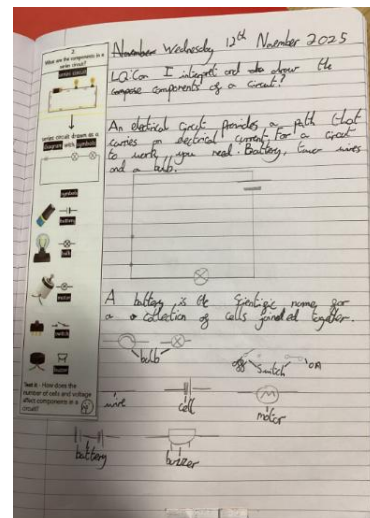 2
What are the components in a
series circuit?
series circuit
series circuit drawn as a
diagram with symbols
symbols
battery
bulb
motor
switch
buzzer
Text A - How does the
number of cells and voltage
affect components in a
circuit?
Wednesday 12th November 2025
LQ: Can I interpret and draw the
components of a circuit?
An electrical circuit provides a path that
carries an electrical current. For a circuit
to work, you need: Battery, two wires
and a bulb.
A battery is the scientific name for
a collection of cells joined together.
bulb
off switch on
wire
cell
motor
M
battery
buzzer